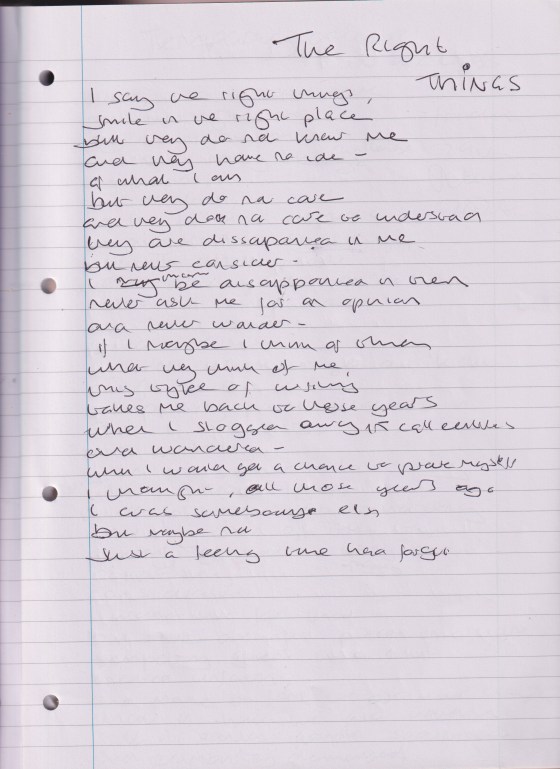 The Right
Things
I say the right things,
smile in the right place
but they do not know me
and they have no ide -
of what I am
but they do not care
and they do not care to understand
they are dissapointed in me
but never consider -
I may be disappointed in them
never ask me for an opinion
and never wonder -
if I maybe I think of them
what they think of me,
this type of
takes me back to those years
when I slogged away in call centres
and wondered -
when I would get a chance to prove myself
I thought, all those years ago
I was somebody else
but maybe not
Just a feeling time had forgot